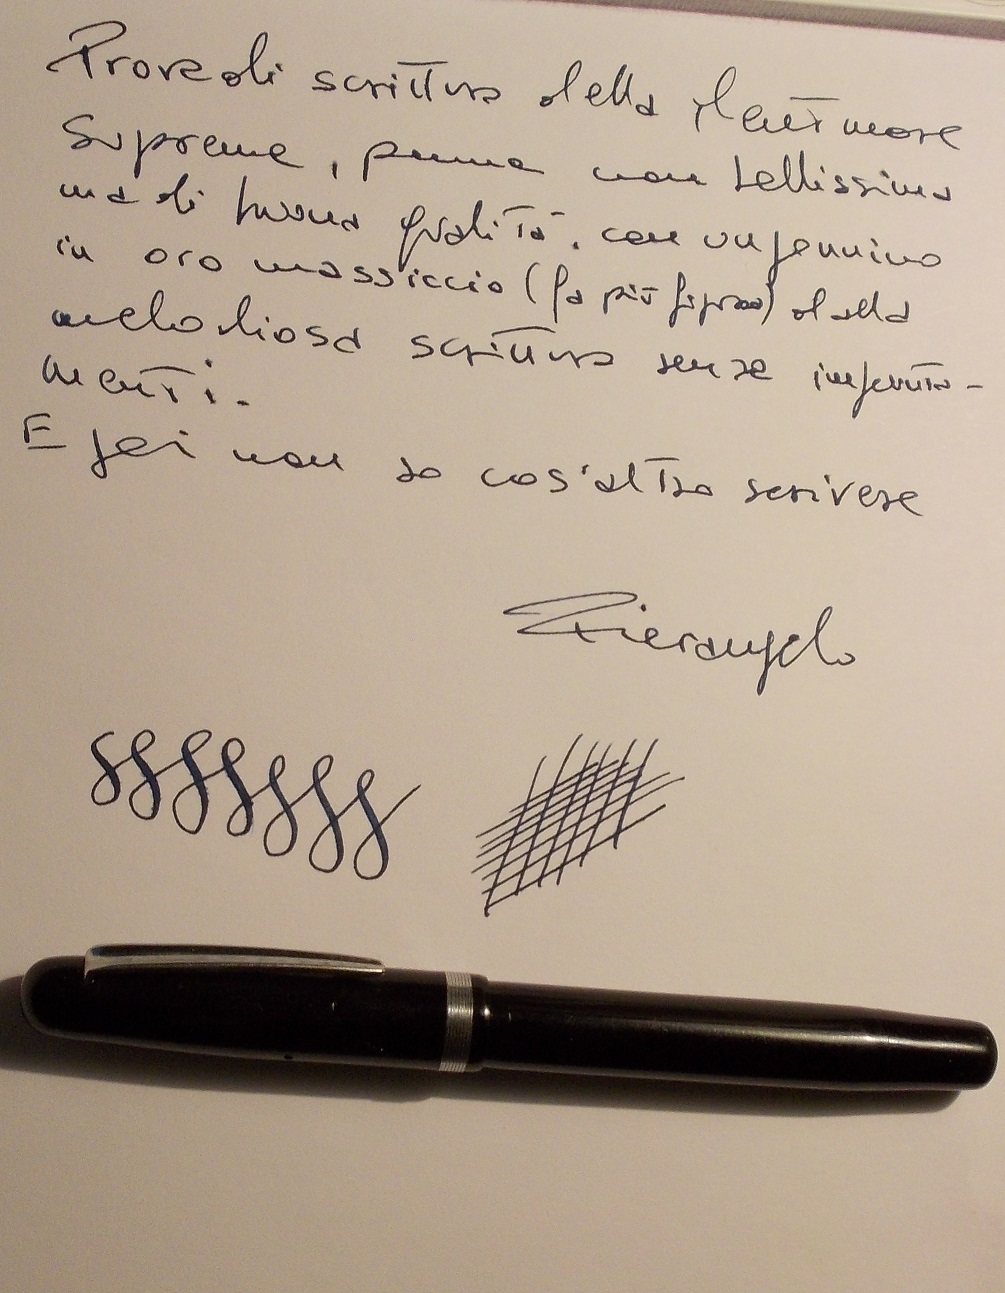 Prove di scrittura della Kentmore
Supreme, penna non bellissima
ma di buona qualità, con un pennino
in oro massiccio (fa più figo) dalla
melodiosa scrittura senza impunta-
menti.
E poi non so cos'altro scrivere
Pierangelo